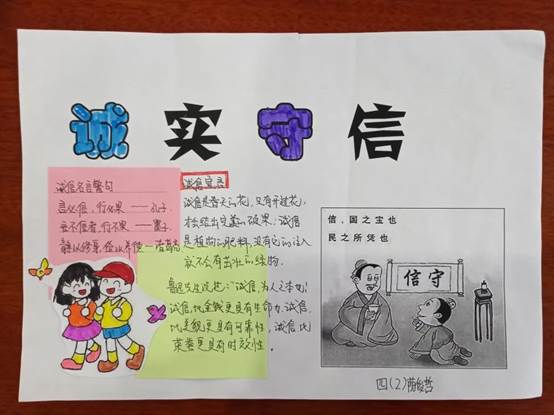 诚实守信
诚信名言警句
言必信，行必果 —— 孔子
言不信者，行不果 —— 墨子
诚信宣言
诚信是春天的花，只有开过花，
才会结出完美的硕果；诚信
是植物的肥料，没有它的注入
就不会有茁壮的植物。
鲁迅先生说过：“诚信为人之本也”
诚信，比金钱更具有生命力，诚信，
比美貌更具有可靠性，诚信，比
荣誉更具有时效性。
信，国之宝也
民之所凭也
信守
四（2）